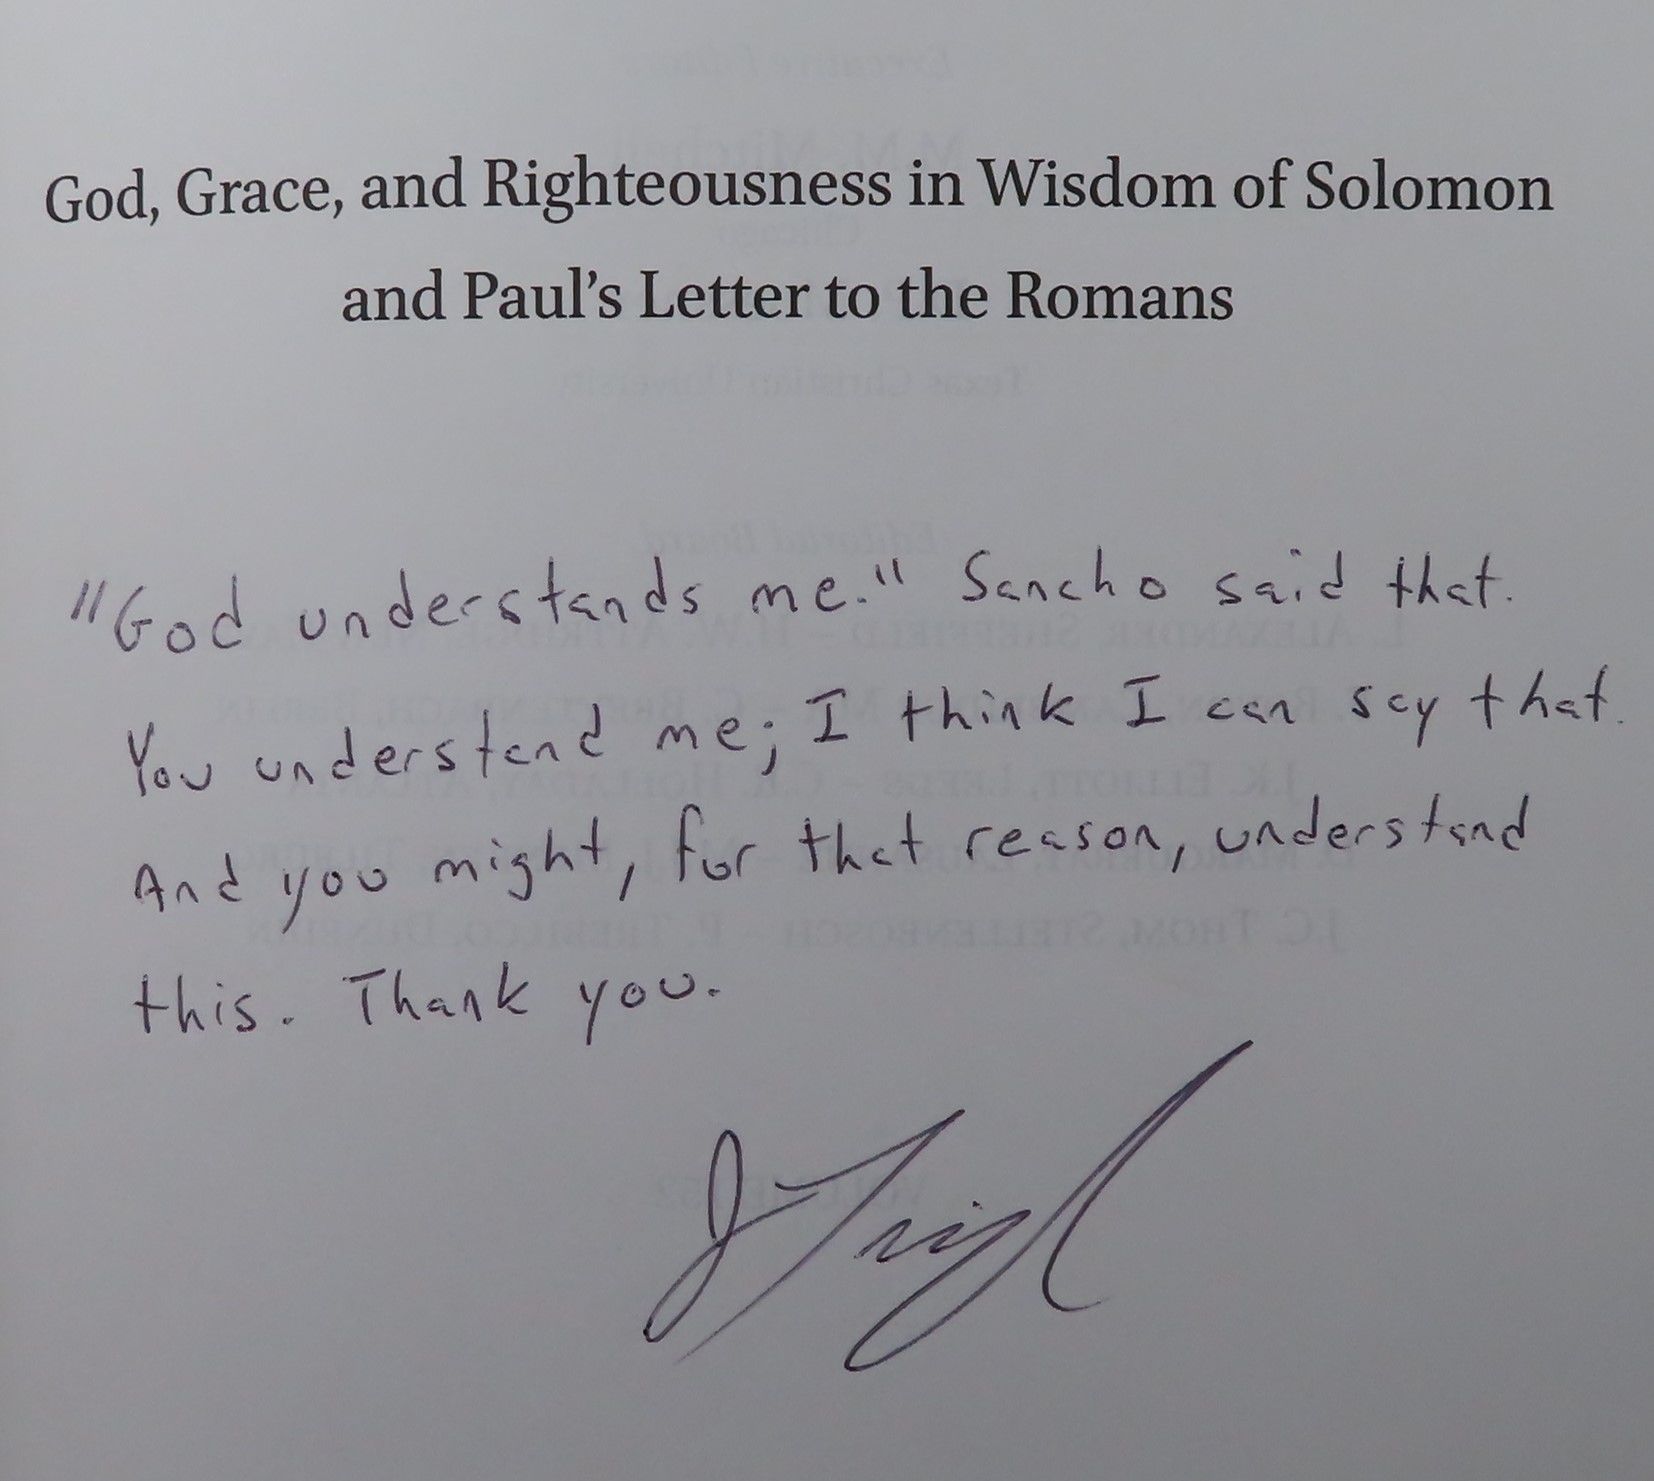 God, Grace, and Righteousness in Wisdom of Solomon
and Paul's Letter to the Romans
"God understands me." Sancho said that.
You understand me; I think I can say that.
And you might, for that reason, understand
this. Thank you.